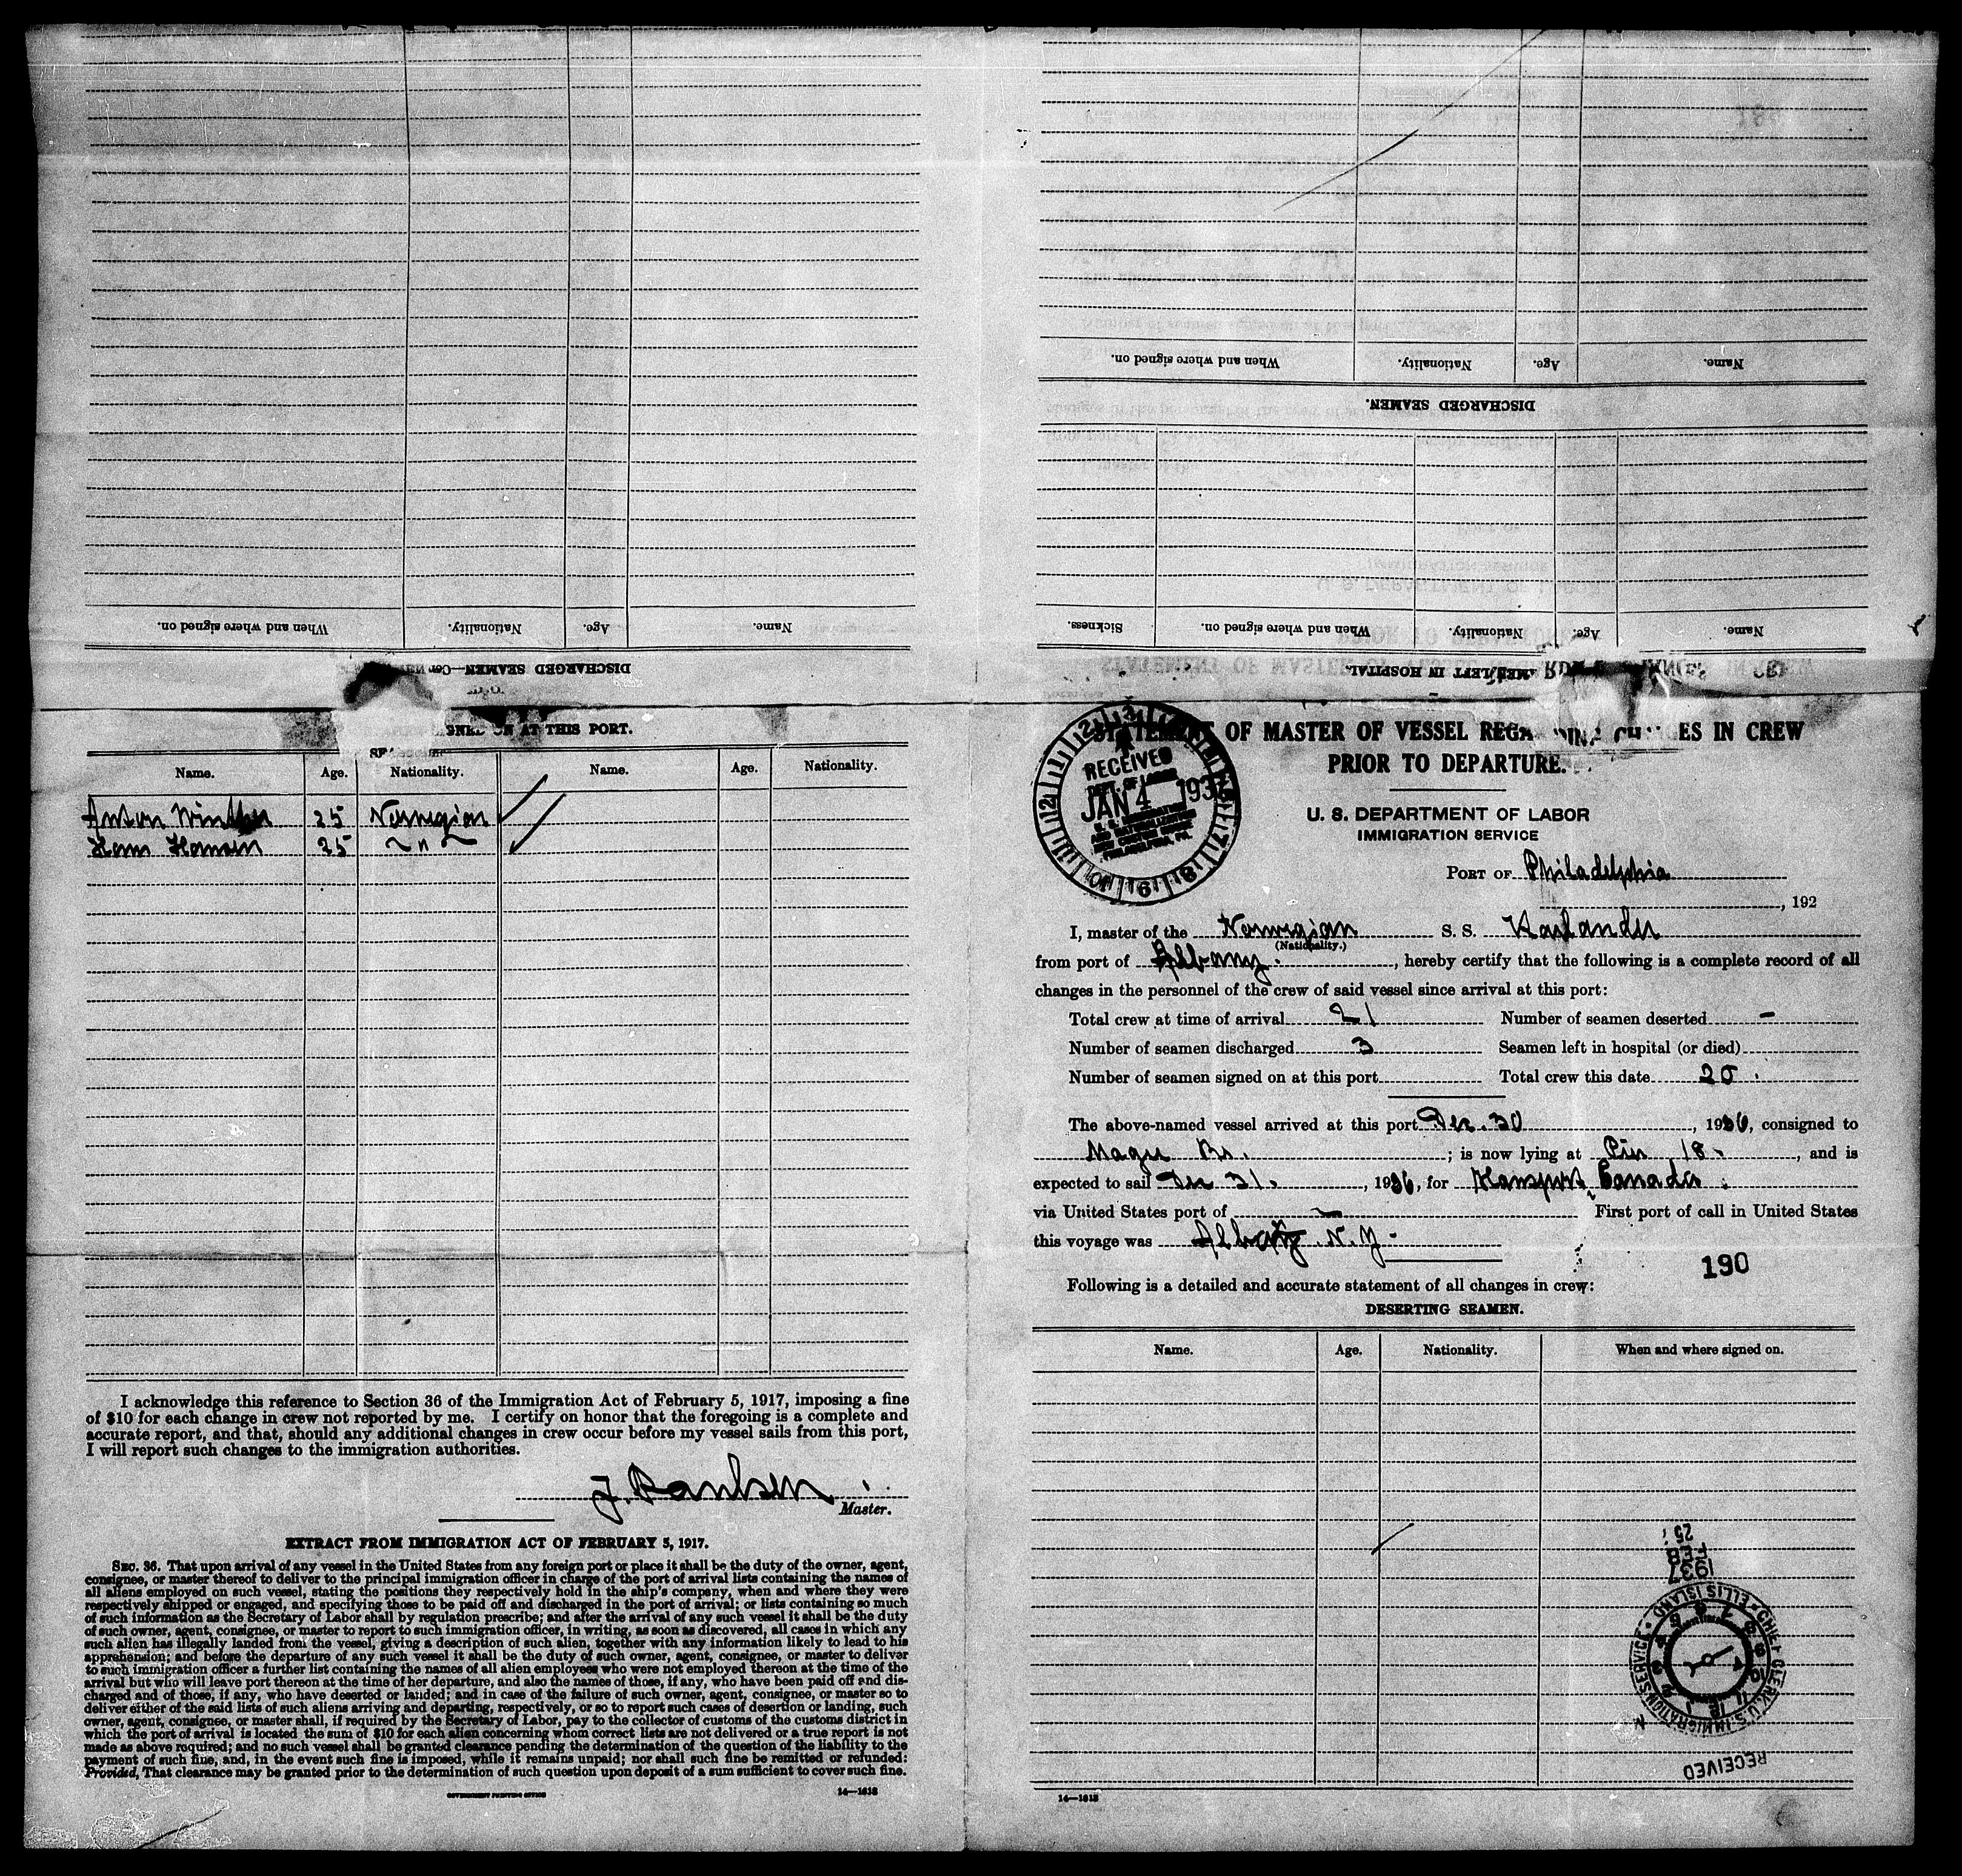 When and where signed on.
Nationality.
Age.
Name.
DISCHARGED SEAMEN—Con
When and where signed on.
Nationality.
Age.
Name.
DISCHARGED SEAMEN.
Sickness.
When and where signed on.
Nationality.
Age.
Name.
LEFT IN HOSPITAL.
ON AT THIS PORT.
Name. Age. Nationality. Name. Age. Nationality.
Anton Winther 25 Norwegian
Hans Hansen 25 " 
I acknowledge this reference to Section 36 of the Immigration Act of February 5, 1917, imposing a fine
of $10 for each change in crew not reported by me. I certify on honor that the foregoing is a complete and
accurate report, and that, should any additional changes in crew occur before my vessel sails from this port,
I will report such changes to the immigration authorities.
J. Paulsen
Master.
EXTRACT FROM IMMIGRATION ACT OF FEBRUARY 5, 1917.
SEC. 36. That upon arrival of any vessel in the United States from any foreign port or place it shall be the duty of the owner, agent,
consignee, or master thereof to deliver to the principal immigration officer in charge of the port of arrival lists containing the names of
all aliens employed on such vessel, stating the positions they respectively hold in the ship's company, when and where they were
respectively shipped or engaged, and specifying those to be paid off and discharged in the port of arrival; or lists containing so much
of such information as the Secretary of Labor shall by regulation prescribe; and after the arrival of any such vessel it shall be the duty
of such owner, agent, consignee, or master to report to such immigration officer, in writing, as soon as discovered, all cases in which any
such alien has illegally landed from the vessel, giving a description of such alien, together with any information likely to lead to his
apprehension; and before the departure of any such vessel it shall be the duty of such owner, agent, consignee, or master to deliver
to such immigration officer a further list containing the names of all alien employees who were not employed thereon at the time of the
arrival but who will leave port thereon at the time of her departure, and also the names of those, if any, who have been paid off and dis-
charged and of those, if any, who have deserted or landed; and in case of the failure of such owner, agent, consignee, or master so to
deliver either of the said lists of such aliens arriving and departing, respectively, or so to report such cases of desertion or landing, such
owner, agent, consignee, or master shall, if required by the Secretary of Labor, pay to the collector of customs of the customs district in
which the port of arrival is located the sum of $10 for each alien concerning whom correct lists are not delivered or a true report is not
made as above required; and no such vessel shall be granted clearance pending the determination of the question of the liability to the
payment of such fine, and, in the event such fine is imposed, while it remains unpaid; nor shall such fine be remitted or refunded:
Provided, That clearance may be granted prior to the determination of such question upon deposit of a sum sufficient to cover such fine.
GOVERNMENT PRINTING OFFICE 14—1613
RECEIVED
DEPT. OF LABOR
JAN 4 1937
U. S. IMMIGRATION
AND NATURALIZATION
NEW CUSTOM HOUSE
PHILADELPHIA, PA.
OF MASTER OF VESSEL IN CREW
PRIOR TO DEPARTURE.
U. S. DEPARTMENT OF LABOR
IMMIGRATION SERVICE
PORT OF Philadelphia
, 192
I, master of the Norwegian S. S. Karlander
(Nationality.)
from port of Albany. , hereby certify that the following is a complete record of all
changes in the personnel of the crew of said vessel since arrival at this port:
Total crew at time of arrival 21 Number of seamen deserted -
Number of seamen discharged 3 Seamen left in hospital (or died)
Number of seamen signed on at this port Total crew this date 20.
The above-named vessel arrived at this port Dec. 30 , 1936, consigned to
Br. ; is now lying at Pier 18. , and is
expected to sail Dec 31. , 1936, for Hansport, Canada.
via United States port of — First port of call in United States
this voyage was Albany N.Y.
190
Following is a detailed and accurate statement of all changes in crew:
DESERTING SEAMEN.
Name. Age. Nationality. When and where signed on.
1937
FEB
25
CHIEF CLERK, U.S. IMMIGRATION SERVICE • ELLIS ISLAND
RECEIVED
14—1613